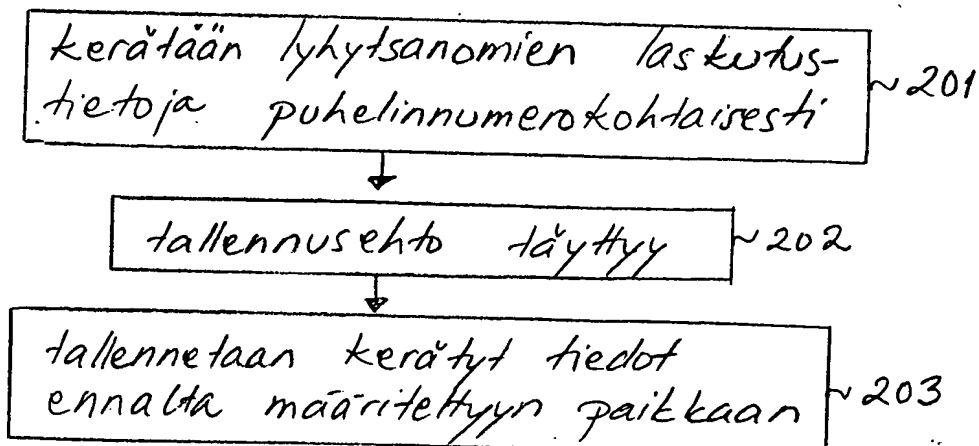 kerätään lyhytsanomien laskutus-
tietoja puhelinnumerokohtaisesti
~201
tallennusehto täyttyy ~202
tallennetaan kerätyt tiedot
ennalta määriteltyyn paikkaan ~203